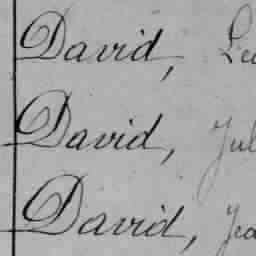 David,
David, Jul
David,